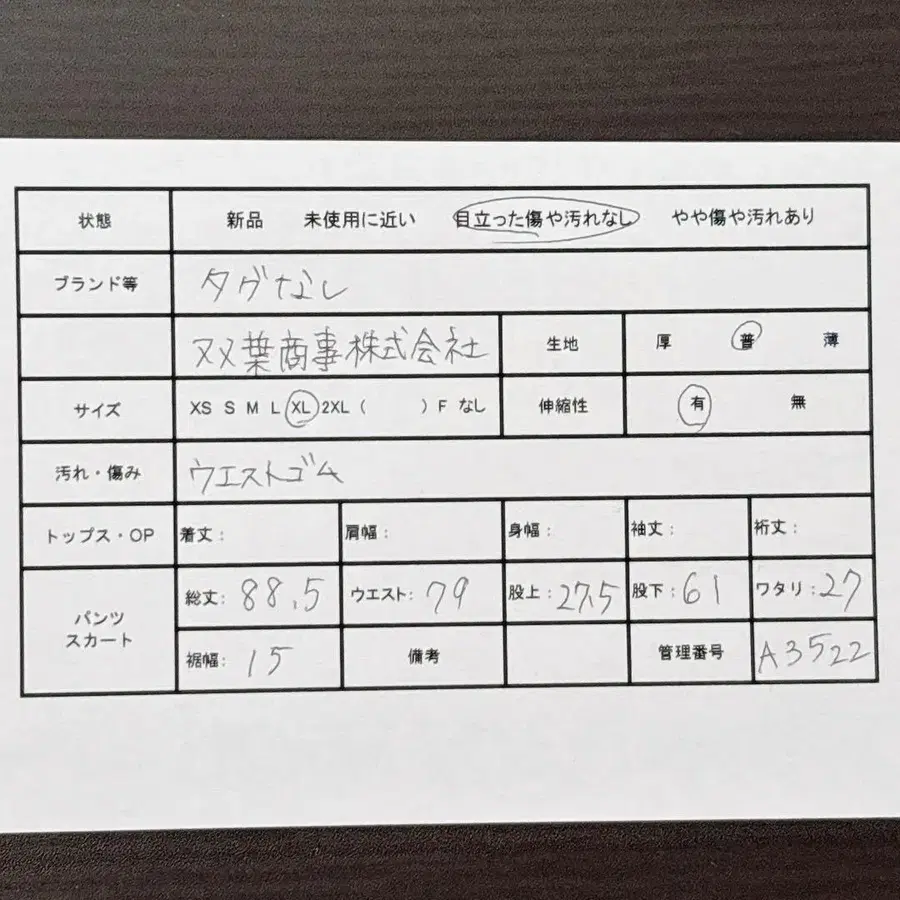 状態 新品 未使用に近い 目立った傷や汚れなし やや傷や汚れあり
ブランド等 タグなし
双葉商事株式会社 生地 厚 普 薄
サイズ XS S M L XL 2XL ( ) F なし 伸縮性 有 無
汚れ・傷み ウエストゴム
トップス・OP 着丈: 肩幅: 身幅: 袖丈: 裄丈:
パンツ スカート
総丈: 88.5 ウエスト: 79 股上: 27.5 股下: 61 ワタリ: 27
裾幅: 15 備考 管理番号 A3522